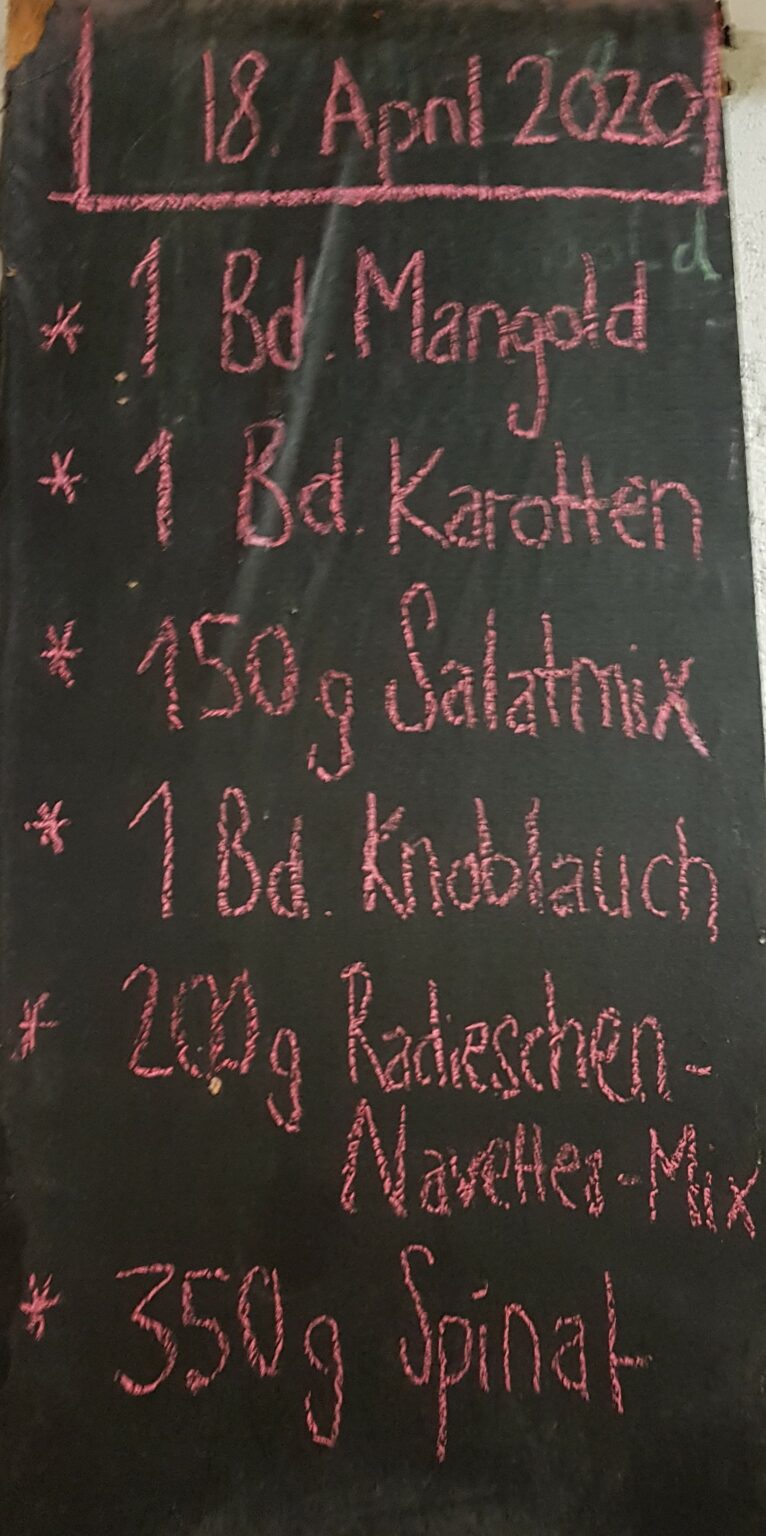 18. April 2020
* 1 Bd. Mangold
* 1 Bd. Karotten
* 150g Salatmix
* 1 Bd. Knoblauch
* 200g Radieschen-
Navettes-Mix
* 350g Spinat